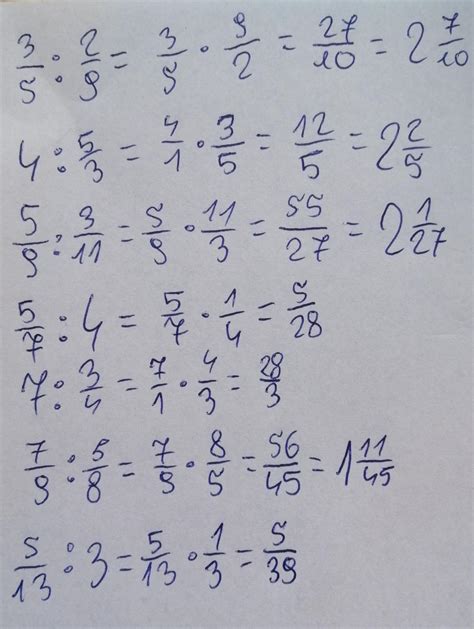 3/5 : 2/9 = 3/5 · 9/2 = 27/10 = 2 7/10
4 : 5/3 = 4/1 · 3/5 = 12/5 = 2 2/5
5/9 : 3/11 = 5/9 · 11/3 = 55/27 = 2 1/27
5/7 : 4 = 5/7 · 1/4 = 5/28
7 : 3/4 = 7/1 · 4/3 = 28/3
7/9 : 5/8 = 7/9 · 8/5 = 56/45 = 1 11/45
5/13 : 3 = 5/13 · 1/3 = 5/39